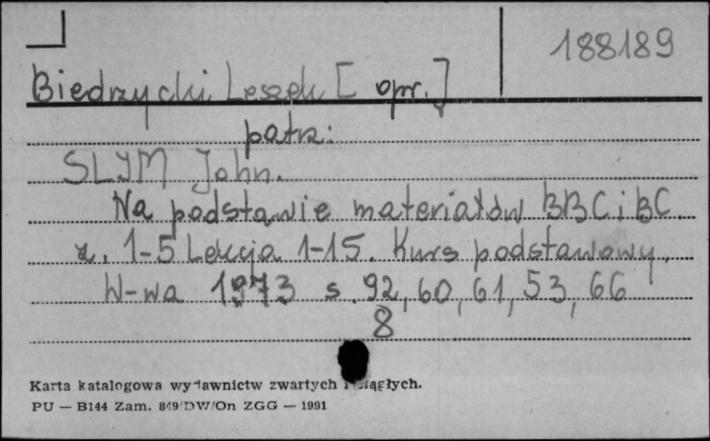 188189
Biedrzycki Leszek [opr.]
patrz:
SLYM John.
Na podstawie materiałów BBC i BC
z. 1-5 Lekcja 1-15. Kurs podstawowy.
W-wa 1973 s. 92, 60, 61, 53, 66
8
Karta katalogowa wydawnictw zwartych i ciągłych.
PU — B144 Zam. 849/DW/On ZGG — 1991